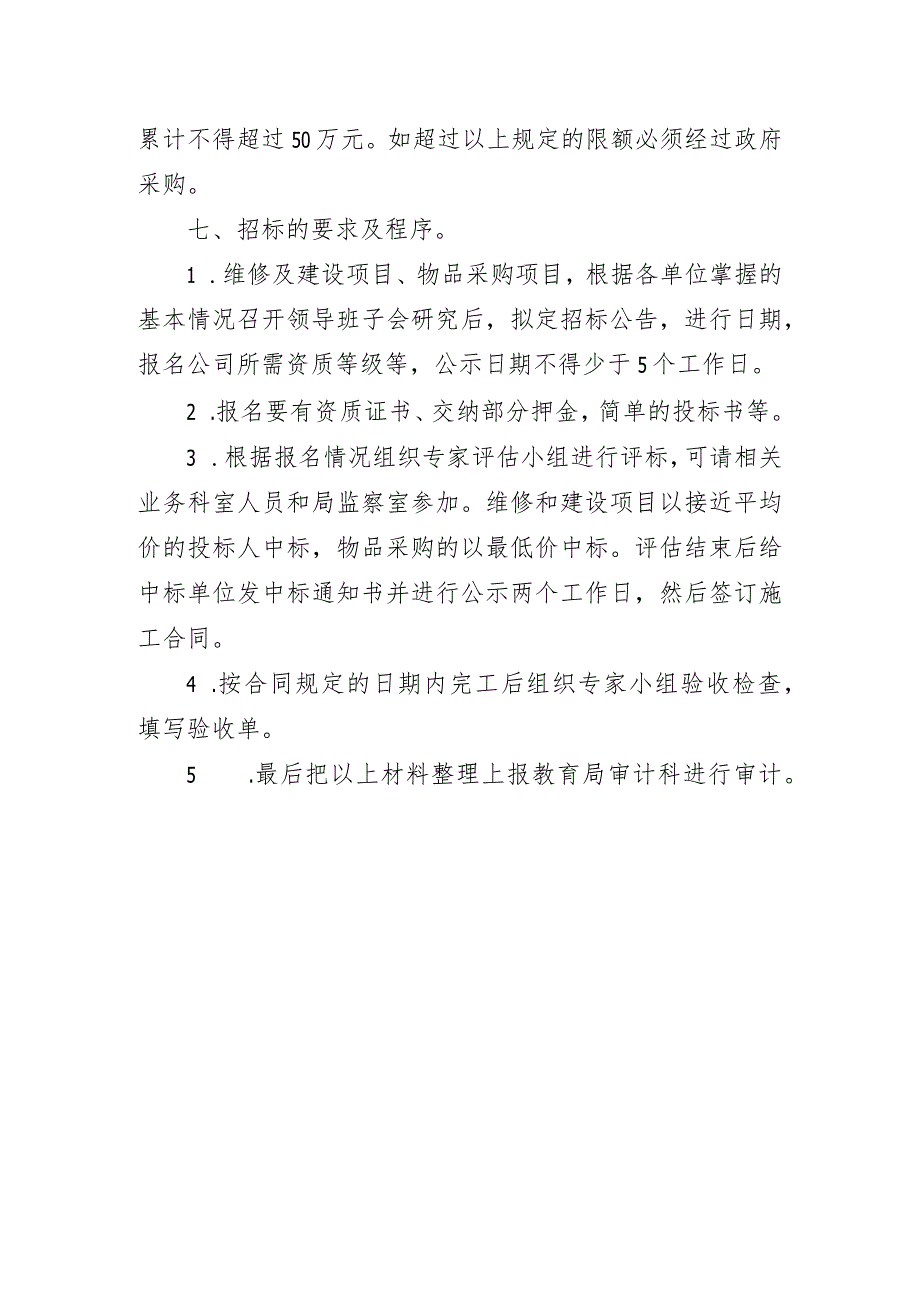 累计不得超过50万元。如超过以上规定的限额必须经过政府
采购。
七、招标的要求及程序。
1 .维修及建设项目、物品采购项目，根据各单位掌握的
基本情况召开领导班子会研究后，拟定招标公告，进行日期，
报名公司所需资质等级等，公示日期不得少于5个工作日。
2 .报名要有资质证书、交纳部分押金，简单的投标书等。
3 .根据报名情况组织专家评估小组进行评标，可请相关
业务科室人员和局监察室参加。维修和建设项目以接近平均
价的投标人中标，物品采购的以最低价中标。评估结束后给
中标单位发中标通知书并进行公示两个工作日，然后签订施
工合同。
4 .按合同规定的日期内完工后组织专家小组验收检查，
填写验收单。
5 .最后把以上材料整理上报教育局审计科进行审计。